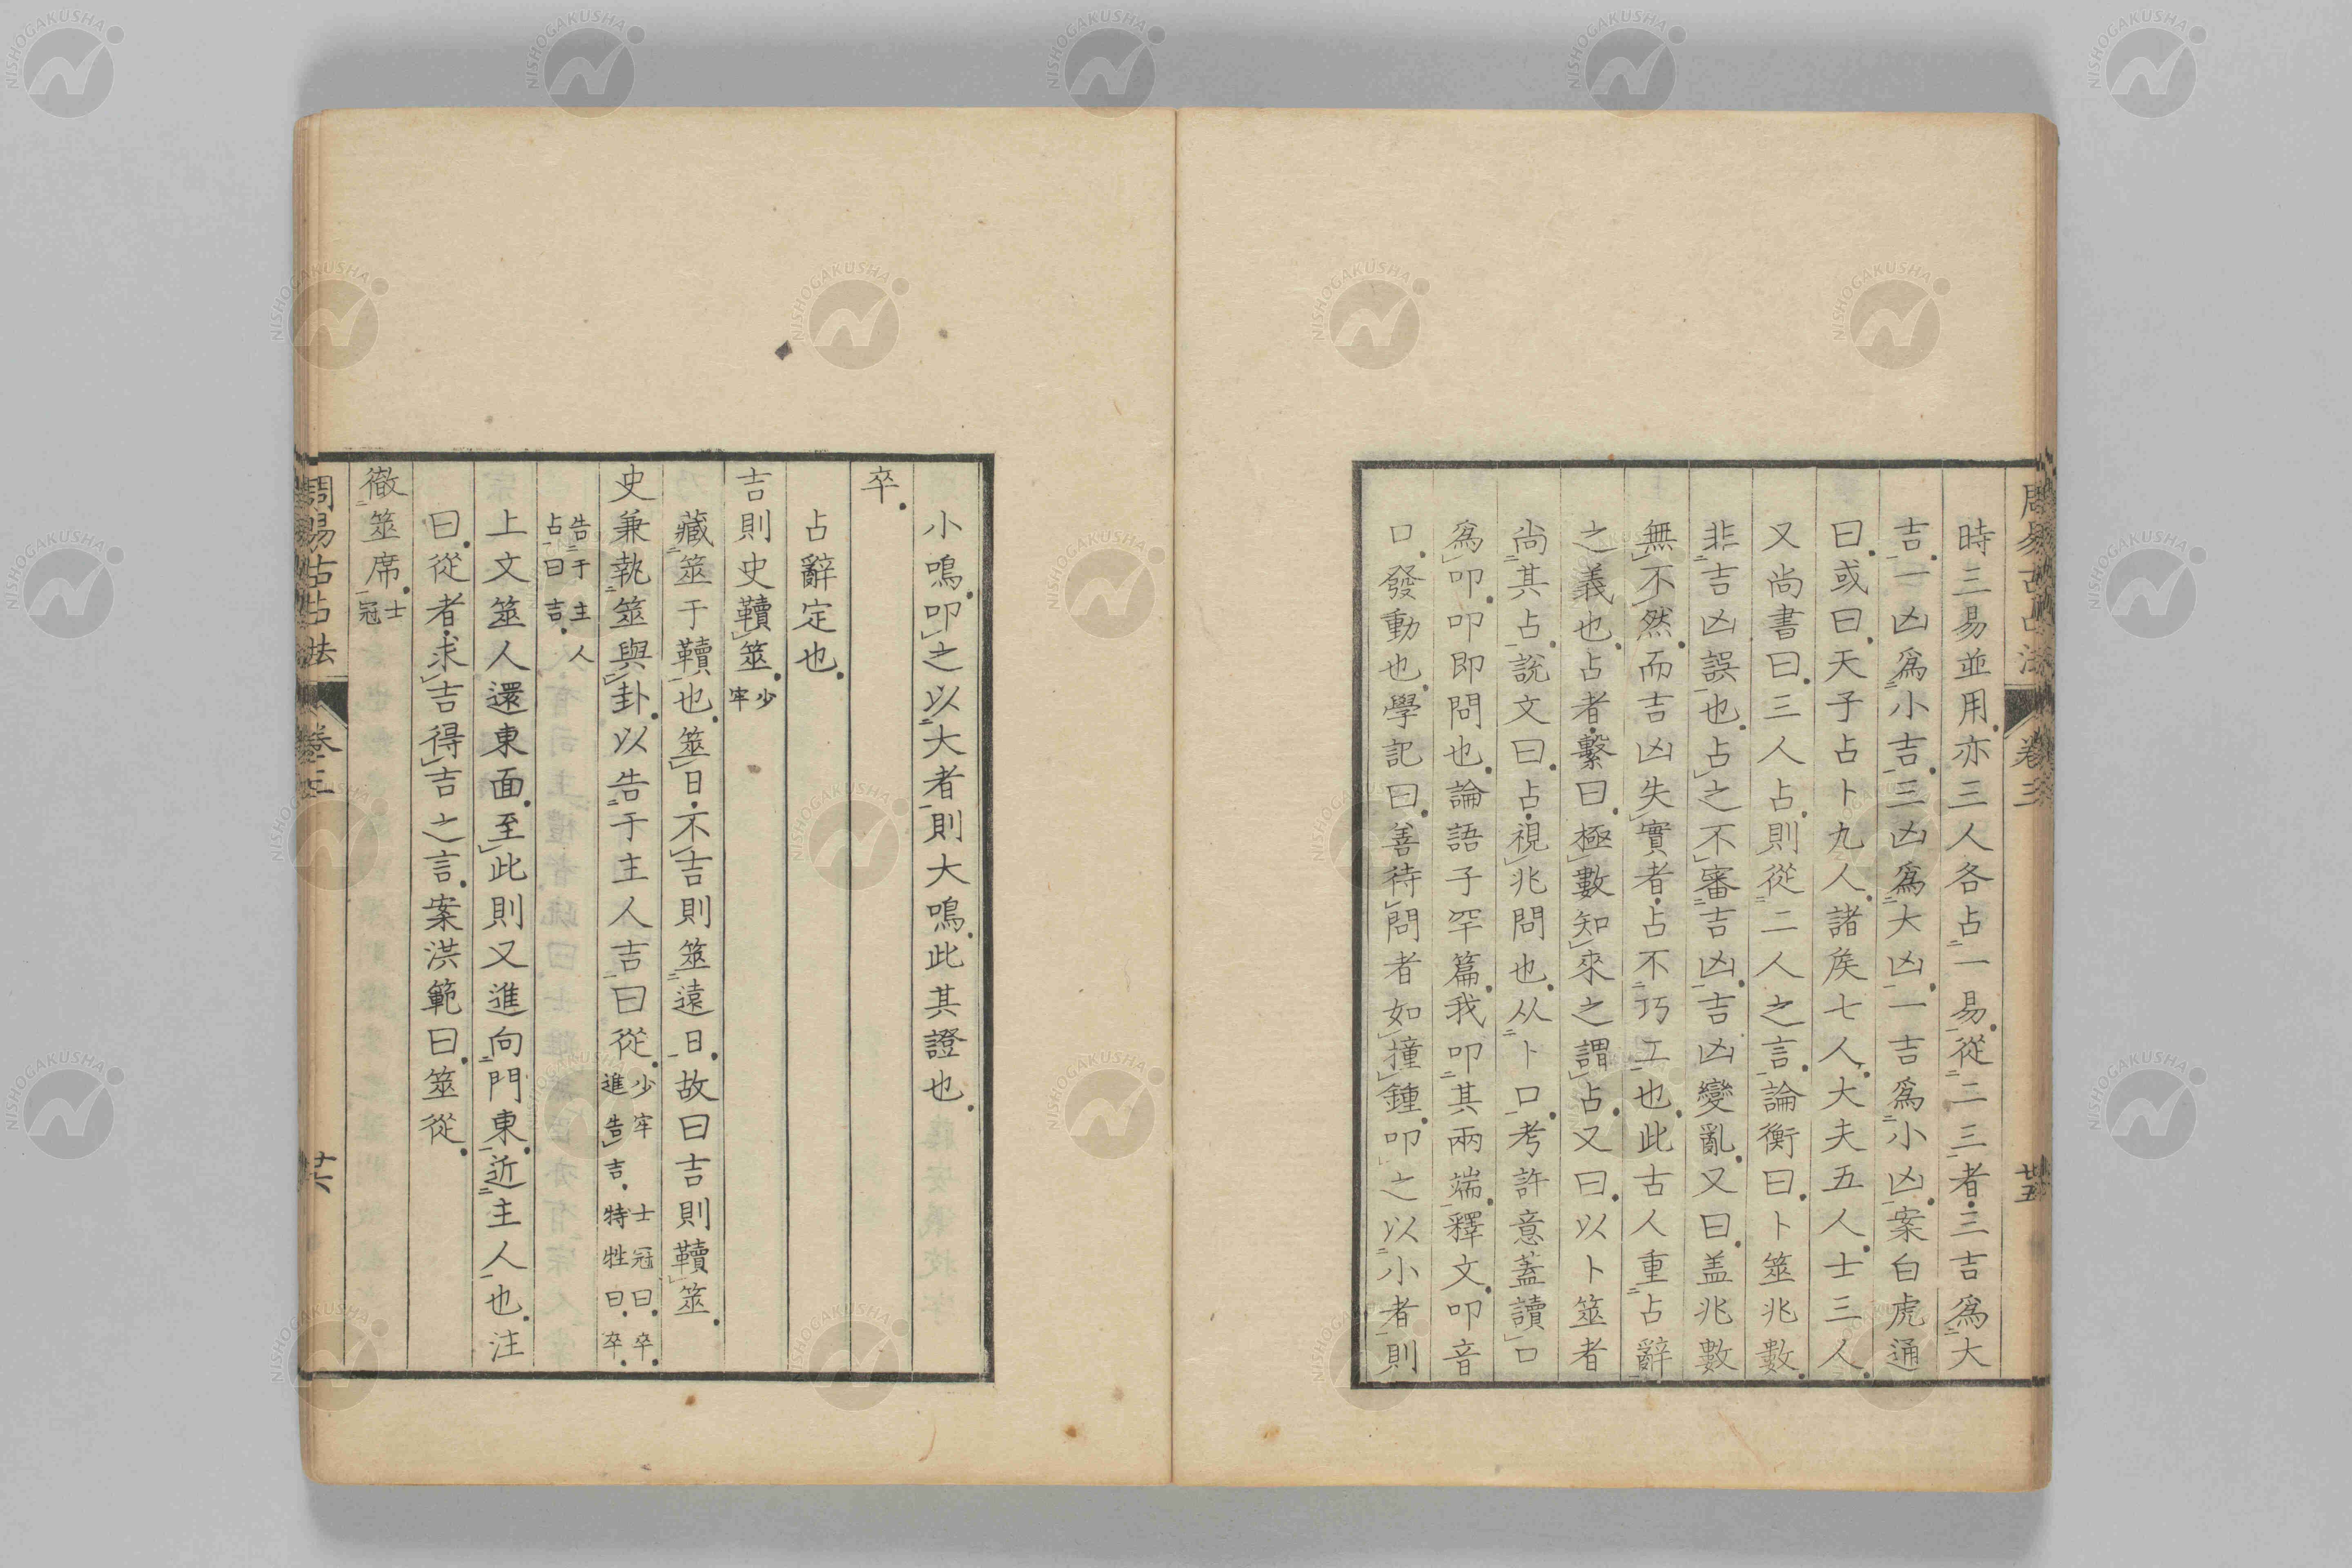 周易古占法 卷三 廿五
時三易並用亦三人各占一易從二三者三吉爲大
吉一凶爲小吉三凶爲大凶一吉爲小凶案白虎通
曰或曰天子占卜九人諸矦七人大夫五人士三人
又尚書曰三人占則從二人之言論衡曰卜筮兆數
非吉凶誤也占之不審吉凶吉凶變亂又曰盖兆數
無不然而吉凶失實者占不巧工也此古人重占辭
之義也占者繫曰極數知來之謂占又曰以卜筮者
尚其占說文曰占視兆問也从卜口考許意蓋讀口
爲叩叩即問也論語子罕篇我叩其兩端釋文叩音
口發動也學記曰善待問者如撞鍾叩之以小者則
小鳴叩之以大者則大鳴此其證也
卒
占辭定也
吉則史韇筮少牢
藏筮于韇也筮日不吉則筮遠日故曰吉則韇筮
史兼執筮與卦以告于主人吉曰從少牢士冠曰卒進告吉特牲曰卒
告于主人占曰吉
上文筮人還東面至此則又進向門東近主人也注
曰從者求吉得吉之言案洪範曰筮從
徹筮席士冠
周易古占法 卷三 廿六
NISHOGAKUSHA